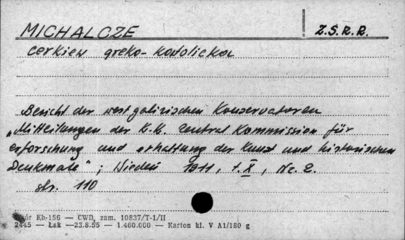 MICHALCZE Z.S.R.R.
cerkiew greko-katolicka
Bericht der westgalizischen Konservatoren
"Mitteilungen der K.K. Zentral Kommission für
erforschung und erhaltung der Kunst und historischen
Denkmale"; Wiedeń 1911, t.X, Nr. 2.
str. 110
Kb-156 — CWD, zam. 10837/T-1/II
2445 — Łsk — 23.8.55 — 1.400.000 — Karton kl. V A1/180 g